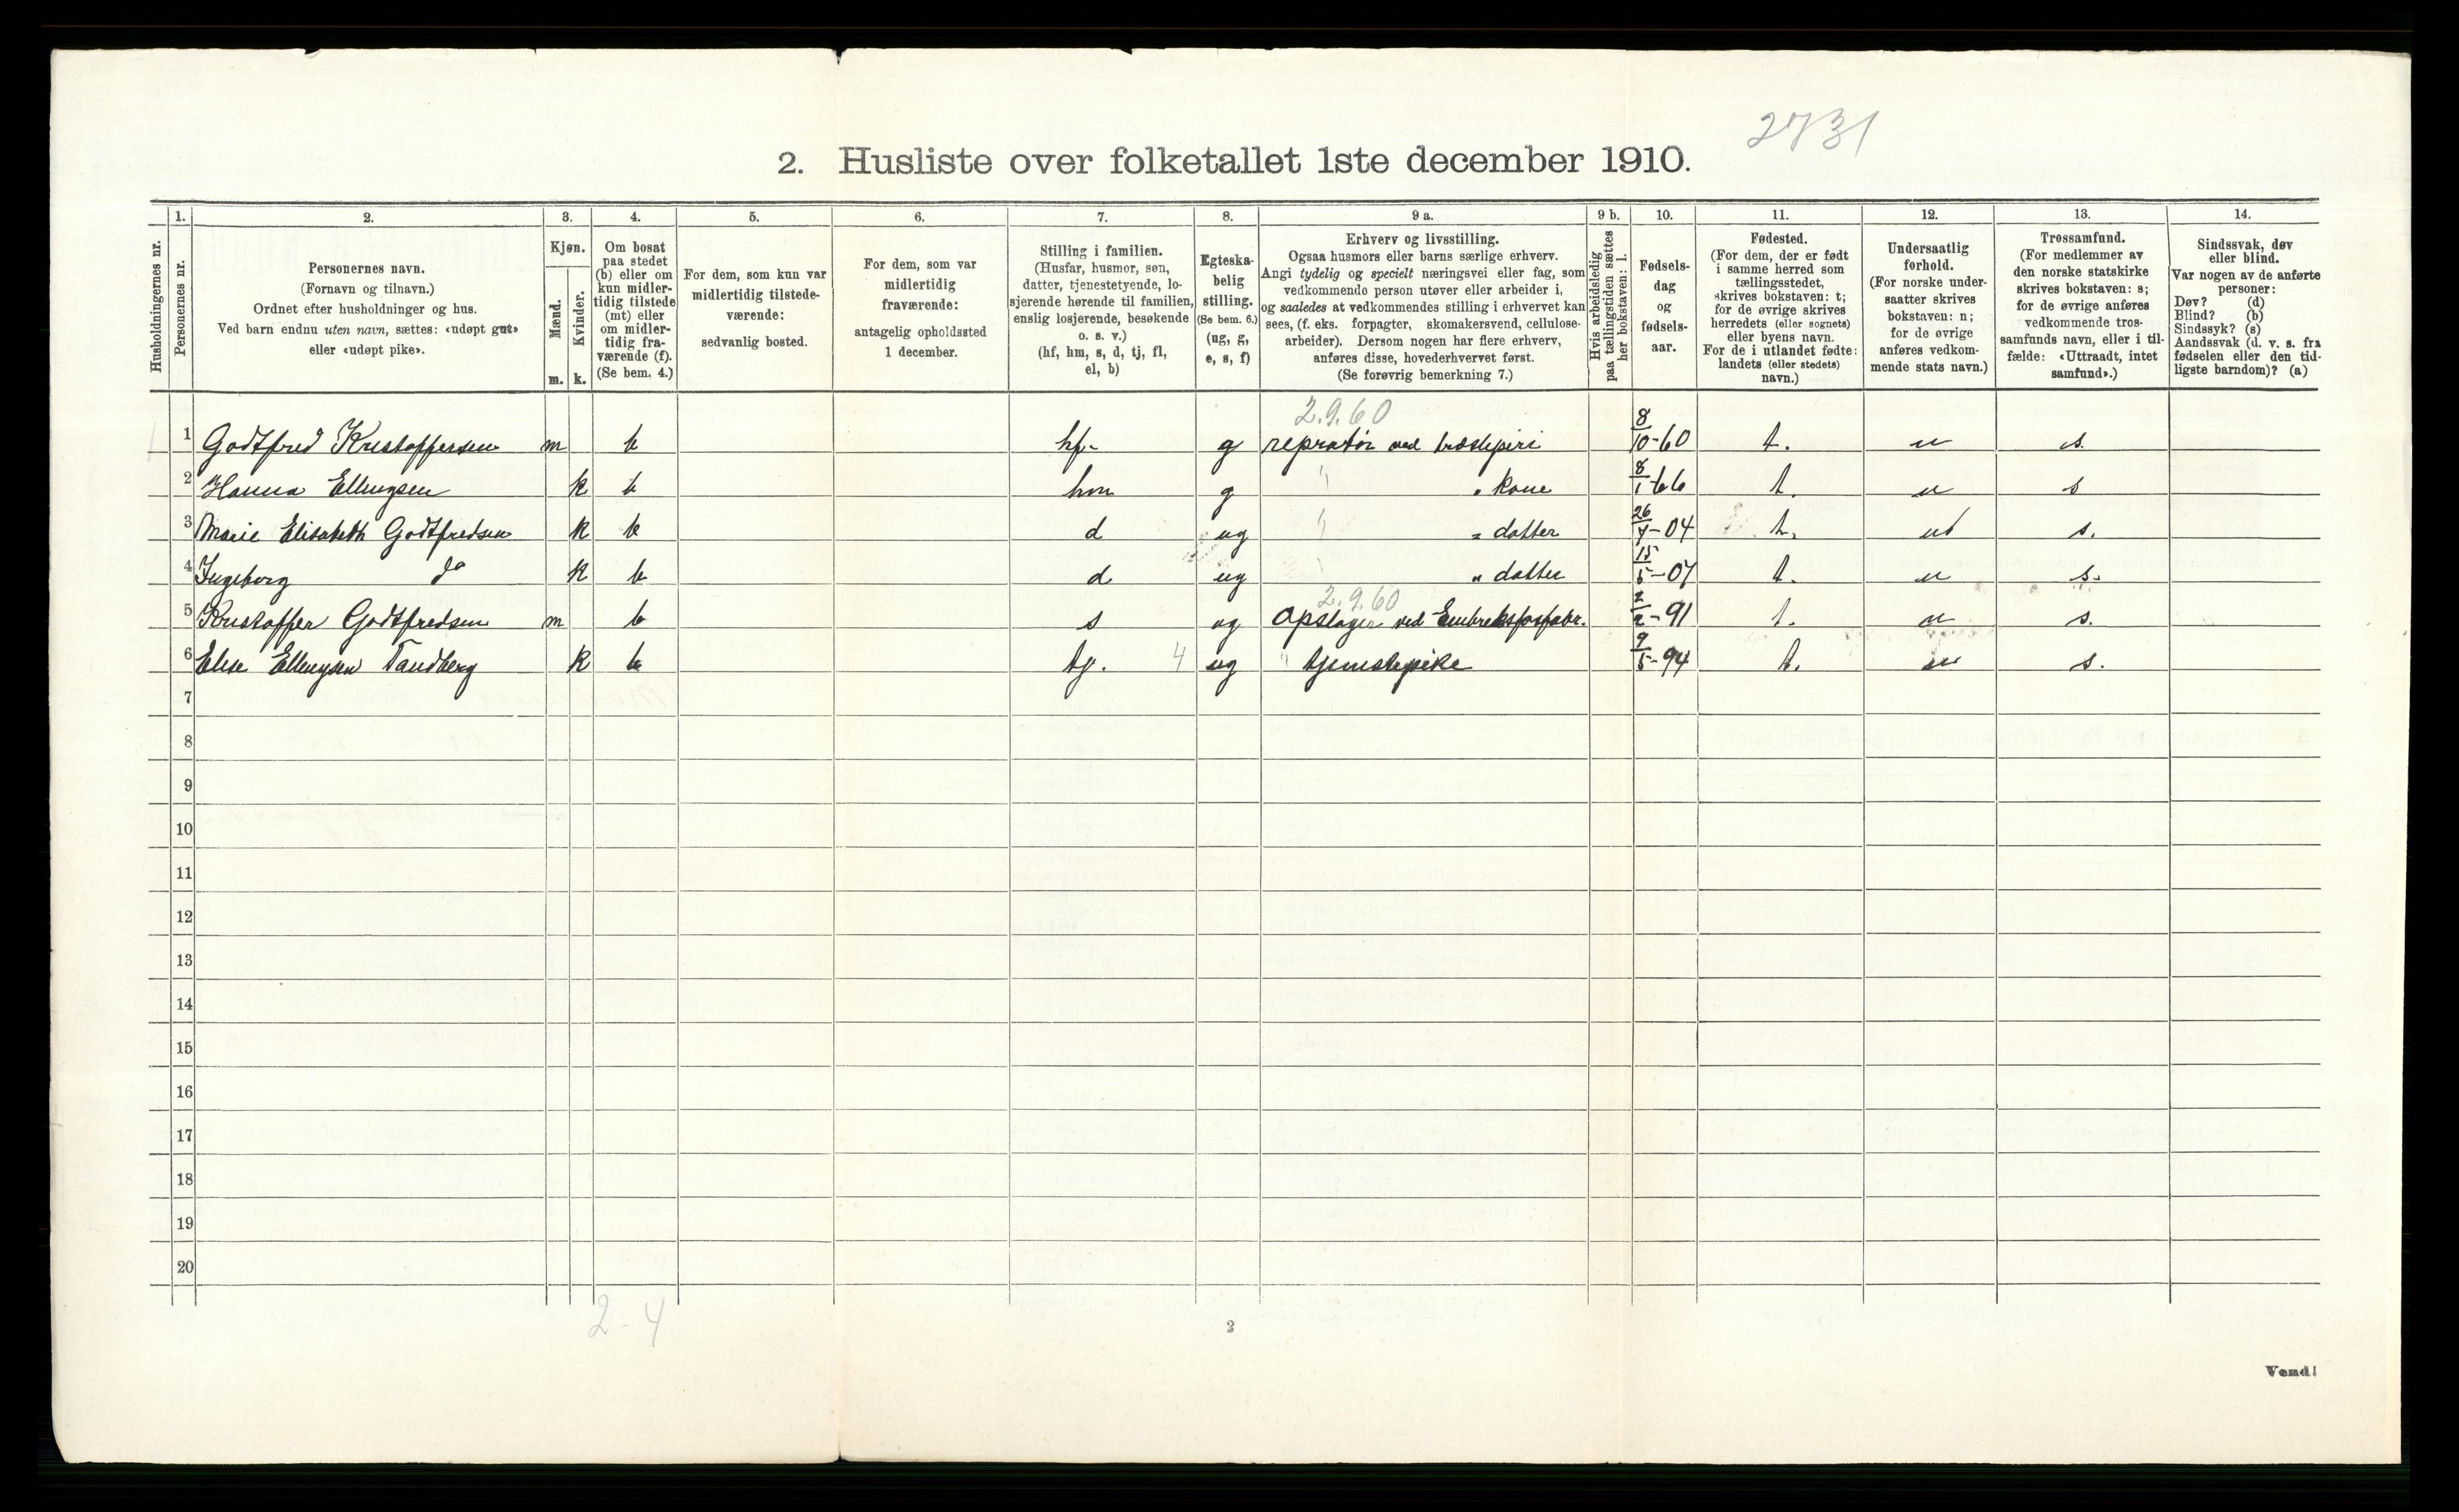 2731
2. Husliste over folketallet 1ste december 1910.
1. 2. 3. 4. 5. 6. 7. 8. 9 a. 9 b. 10. 11. 12. 13. 14.
Husholdningernes nr.
Personernes nr.
Personernes navn.
(Fornavn og tilnavn.)
Ordnet efter husholdninger og hus.
Ved barn endnu uten navn, sættes: «udøpt gut»
eller «udøpt pike».
Kjøn.
Mænd.
Kvinder.
m. k.
Om bosat
paa stedet
(b) eller om
kun midler-
tidig tilstede
(mt) eller
om midler-
tidig fra-
værende (f).
(Se bem. 4.)
For dem, som kun var
midlertidig tilstede-
værende:
sedvanlig bosted.
For dem, som var
midlertidig
fraværende:
antagelig opholdssted
1 december.
Stilling i familien.
(Husfar, husmor, søn,
datter, tjenestetyende, lo-
sjerende hørende til familien,
enslig losjerende, besøkende
o. s. v.)
(hf, hm, s, d, tj, fl,
el, b)
Egteska-
belig
stilling.
(Se bem. 6.)
(ug, g,
e, s, f)
Erhverv og livsstilling.
Ogsaa husmors eller barns særlige erhverv.
Angi tydelig og specielt næringsvei eller fag, som
vedkommende person utøver eller arbeider i,
og saaledes at vedkommendes stilling i erhvervet kan
sees, (f. eks. forpagter, skomakersvend, cellulose-
arbeider). Dersom nogen har flere erhverv,
anføres disse, hovederhvervet først.
(Se forøvrig bemerkning 7.)
Hvis arbeidsledig
paa tællingstiden sættes
her bokstaven: l.
Fødsels-
dag
og
fødsels-
aar.
Fødested.
(For dem, der er født
i samme herred som
tællingsstedet,
skrives bokstaven: t;
for de øvrige skrives
herredets (eller sognets)
eller byens navn.
For de i utlandet fødte:
landets (eller stedets)
navn.)
Undersaatlig
forhold.
(For norske under-
saatter skrives
bokstaven: n;
for de øvrige
anføres vedkom-
mende stats navn.)
Trossamfund.
(For medlemmer av
den norske statskirke
skrives bokstaven: s;
for de øvrige anføres
vedkommende tros-
samfunds navn, eller i til-
fælde: «Uttraadt, intet
samfund».)
Sindssvak, døv
eller blind.
Var nogen av de anførte
personer:
Døv? (d)
Blind? (b)
Sindssyk? (s)
Aandssvak (d. v. s. fra
fødselen eller den tid-
ligste barndom)? (a)
2.9.60
1 Godtfred Kristoffersen m b hf. g repratør ved træsliperi 8/10-60 t. n s.
2 Hanna Ellingsen k b hm g " kone 8/1-66 t. n s
3 Marie Elisabeth Godtfredsen k b d ug " datter 26/7-04 t. n s.
4 Ingeborg do k b d ug " datter 15/5-07 t. n s.
2.9.60
5 Kristoffer Godtfredsen m b s ug Opslager ved 2/2-91 t. n s.
6 Elise Ellingsen Tandberg k b tj. 4 ug tjenestepike 9/5-94 t. n s.
7
8
9
10
11
12
13
14
15
16
17
18
19
20
2-4
2
Vend!